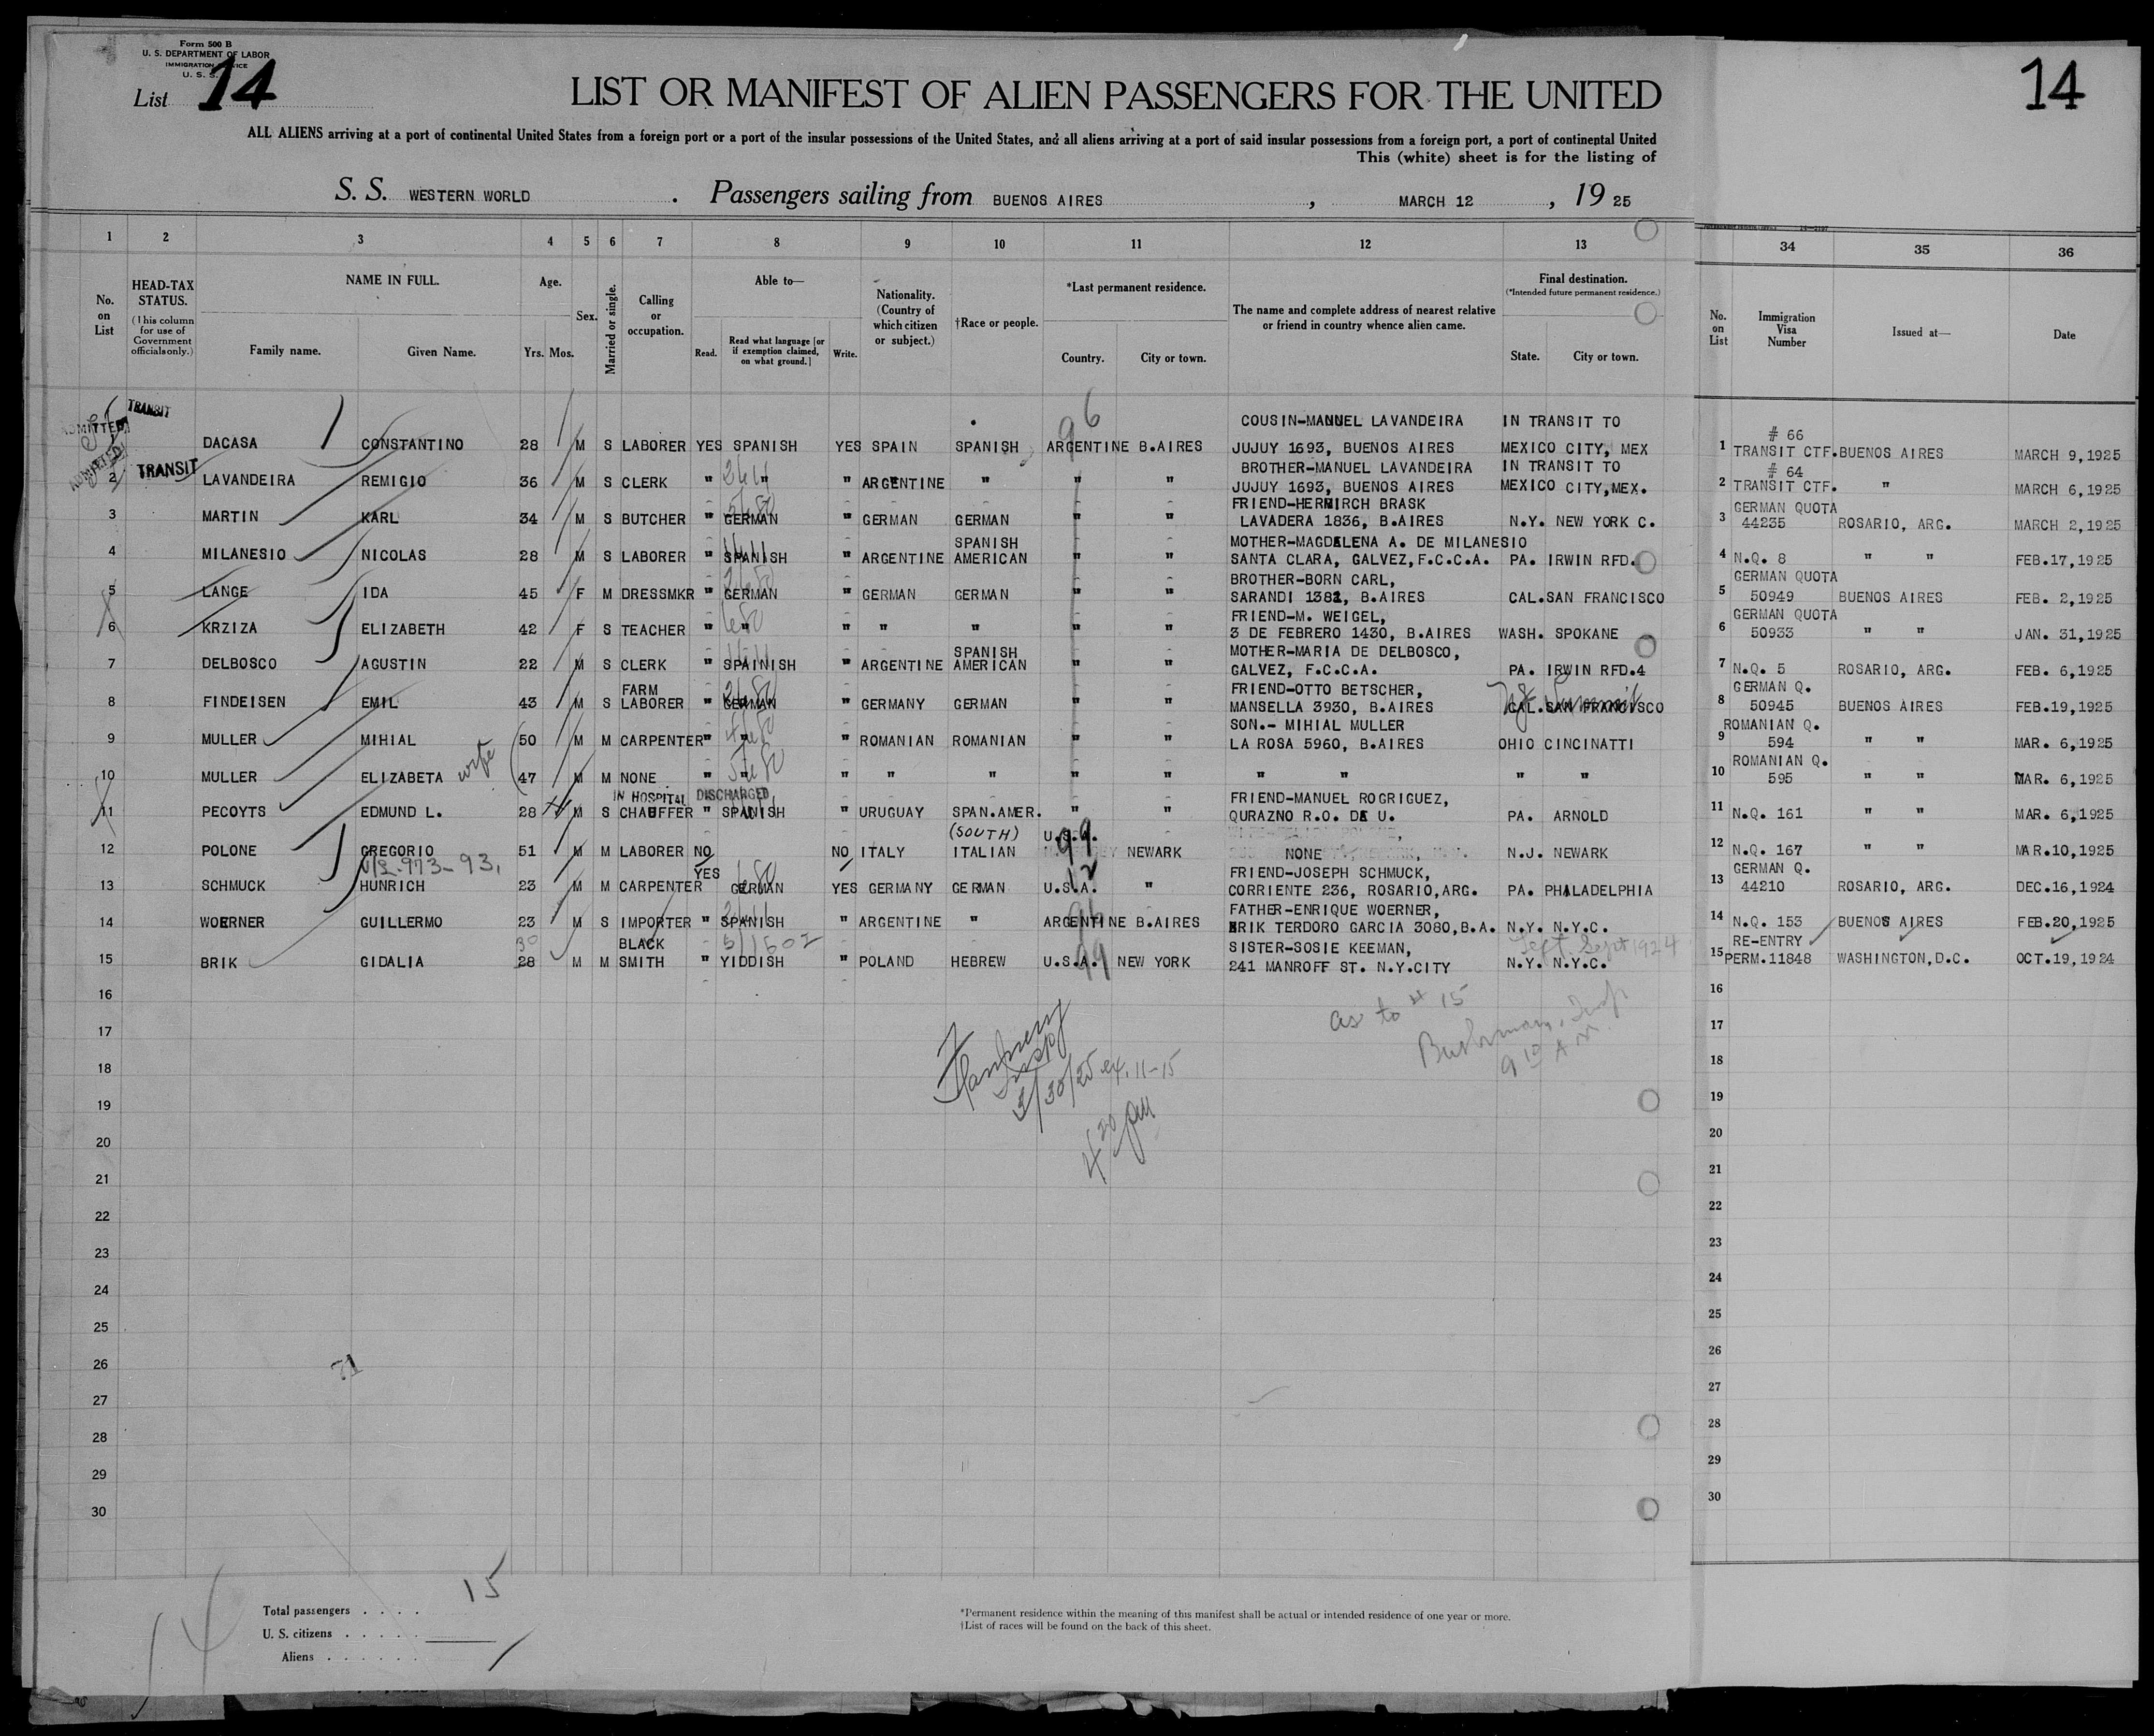 Form 500 B
U. S. DEPARTMENT OF LABOR
IMMIGRATION SERVICE
List 14
14
LIST OR MANIFEST OF ALIEN PASSENGERS FOR THE UNITED
ALL ALIENS arriving at a port of continental United States from a foreign port or a port of the insular possessions of the United States, and all aliens arriving at a port of said insular possessions from a foreign port, a port of continental United
This (white) sheet is for the listing of
S. S. WESTERN WORLD . Passengers sailing from BUENOS AIRES , MARCH 12 , 19 25
1 2 3 4 5 6 7 8 9 10 11 12 13 34 35 36
No. on List
HEAD-TAX STATUS. (This column for use of Government officials only.)
NAME IN FULL. Family name. Given Name.
Age. Yrs. Mos.
Sex.
Married or single.
Calling or occupation.
Able to— Read. Read what language [or if exemption claimed, on what ground.] Write.
Nationality. (Country of which citizen or subject.)
†Race or people.
*Last permanent residence. Country. City or town.
The name and complete address of nearest relative or friend in country whence alien came.
Final destination. (*Intended future permanent residence.) State. City or town.
No. on List
Immigration Visa Number
Issued at—
Date
TRANSIT 96 COUSIN-MANUEL LAVANDEIRA IN TRANSIT TO # 66
ADMITTED 1 DACASA CONSTANTINO 28 M S LABORER YES SPANISH YES SPAIN SPANISH ARGENTINE B.AIRES JUJUY 1693, BUENOS AIRES MEXICO CITY, MEX 1 TRANSIT CTF. BUENOS AIRES MARCH 9,1925
ADMITTED TRANSIT BROTHER-MANUEL LAVANDEIRA IN TRANSIT TO # 64
2 LAVANDEIRA REMIGIO 36 M S CLERK " " " ARGENTINE " " " JUJUY 1693, BUENOS AIRES MEXICO CITY,MEX. 2 TRANSIT CTF. " MARCH 6,1925
FRIEND-HERMIRCH BRASK GERMAN QUOTA
3 MARTIN KARL 34 M S BUTCHER " GERMAN " GERMAN GERMAN " " LAVADERA 1836, B.AIRES N.Y. NEW YORK C. 3 44235 ROSARIO, ARG. MARCH 2,1925
SPANISH MOTHER-MAGDALENA A. DE MILANESIO
4 MILANESIO NICOLAS 28 M S LABORER " SPANISH " ARGENTINE AMERICAN " " SANTA CLARA, GALVEZ,F.C.C.A. PA. IRWIN RFD. 4 N.Q. 8 " " FEB.17,1925
BROTHER-BORN CARL, GERMAN QUOTA
5 LANGE IDA 45 F M DRESSMKR " GERMAN " GERMAN GERMAN " " SARANDI 1382, B.AIRES CAL.SAN FRANCISCO 5 50949 BUENOS AIRES FEB. 2,1925
FRIEND-M. WEIGEL, GERMAN QUOTA
6 KRZIZA ELIZABETH 42 F S TEACHER " " " " " " " 3 DE FEBRERO 1430, B.AIRES WASH. SPOKANE 6 50933 " " JAN. 31,1925
SPANISH MOTHER-MARIA DE DELBOSCO,
7 DELBOSCO AGUSTIN 22 M S CLERK " SPAINISH " ARGENTINE AMERICAN " " GALVEZ, F.C.C.A. PA. IRWIN RFD.4 7 N.Q. 5 ROSARIO, ARG. FEB. 6,1925
FARM FRIEND-OTTO BETSCHER, GERMAN Q.
8 FINDEISEN EMIL 43 M S LABORER " GERMAN " GERMANY GERMAN " " MANSELLA 3930, B.AIRES CAL.SAN FRANCISCO NJ. Summit 8 50945 BUENOS AIRES FEB.19,1925
SON.- MIHIAL MULLER ROMANIAN Q.
9 MULLER MIHIAL 50 M M CARPENTER " " " ROMANIAN ROMANIAN " " LA ROSA 5960, B.AIRES OHIO CINCINATTI 9 594 " " MAR. 6,1925
ROMANIAN Q.
10 MULLER ELIZABETA wife 47 M M NONE " " " " " " " " " " " 10 595 " " MAR. 6,1925
IN HOSPITAL DISCHARGED FRIEND-MANUEL ROGRIGUEZ,
11 PECOYTS EDMUND L. 28 M S CHAUFFER " SPANISH " URUGUAY SPAN.AMER. " " QURAZNO R.O. DE U. PA. ARNOLD 11 N.Q. 161 " " MAR. 6,1925
(SOUTH) U.S.A. 99
12 POLONE GREGORIO 51 M M LABORER NO NO ITALY ITALIAN NEWARK NONE N.J. NEWARK 12 N.Q. 167 " " MAR.10,1925
973-93, YES 12 FRIEND-JOSEPH SCHMUCK, GERMAN Q.
13 SCHMUCK HUNRICH 23 M M CARPENTER GERMAN YES GERMANY GERMAN U.S.A. " CORRIENTE 236, ROSARIO,ARG. PA. PHALADELPHIA 13 44210 ROSARIO, ARG. DEC.16,1924
96 FATHER-ENRIQUE WOERNER,
14 WOERNER GUILLERMO 23 M S IMPORTER " SPANISH " ARGENTINE " ARGENTINE B.AIRES ERIK TERDORO GARCIA 3080,B.A. N.Y. N.Y.C. 14 N.Q. 153 BUENOS AIRES FEB.20,1925
30 BLACK SISTER-SOSIE KEEMAN, Left Sept 1924 RE-ENTRY
15 BRIK GIDALIA 28 M M SMITH " YIDDISH " POLAND HEBREW U.S.A. 99 NEW YORK 241 MANROFF ST. N.Y.CITY N.Y. N.Y.C. 15 PERM.11848 WASHINGTON,D.C. OCT.19,1924
16 16
17 as to # 15 17
18 Insp 3/30/25 ex. 11-15 9 10 AM 18
19 19
20 4 20 PM 20
21 21
22 22
23 23
24 24
25 25
26 26
27 27
28 28
29 29
30 30
14
Total passengers . . . . 15
U. S. citizens . . . . .
Aliens . . . . . .
*Permanent residence within the meaning of this manifest shall be actual or intended residence of one year or more.
†List of races will be found on the back of this sheet.